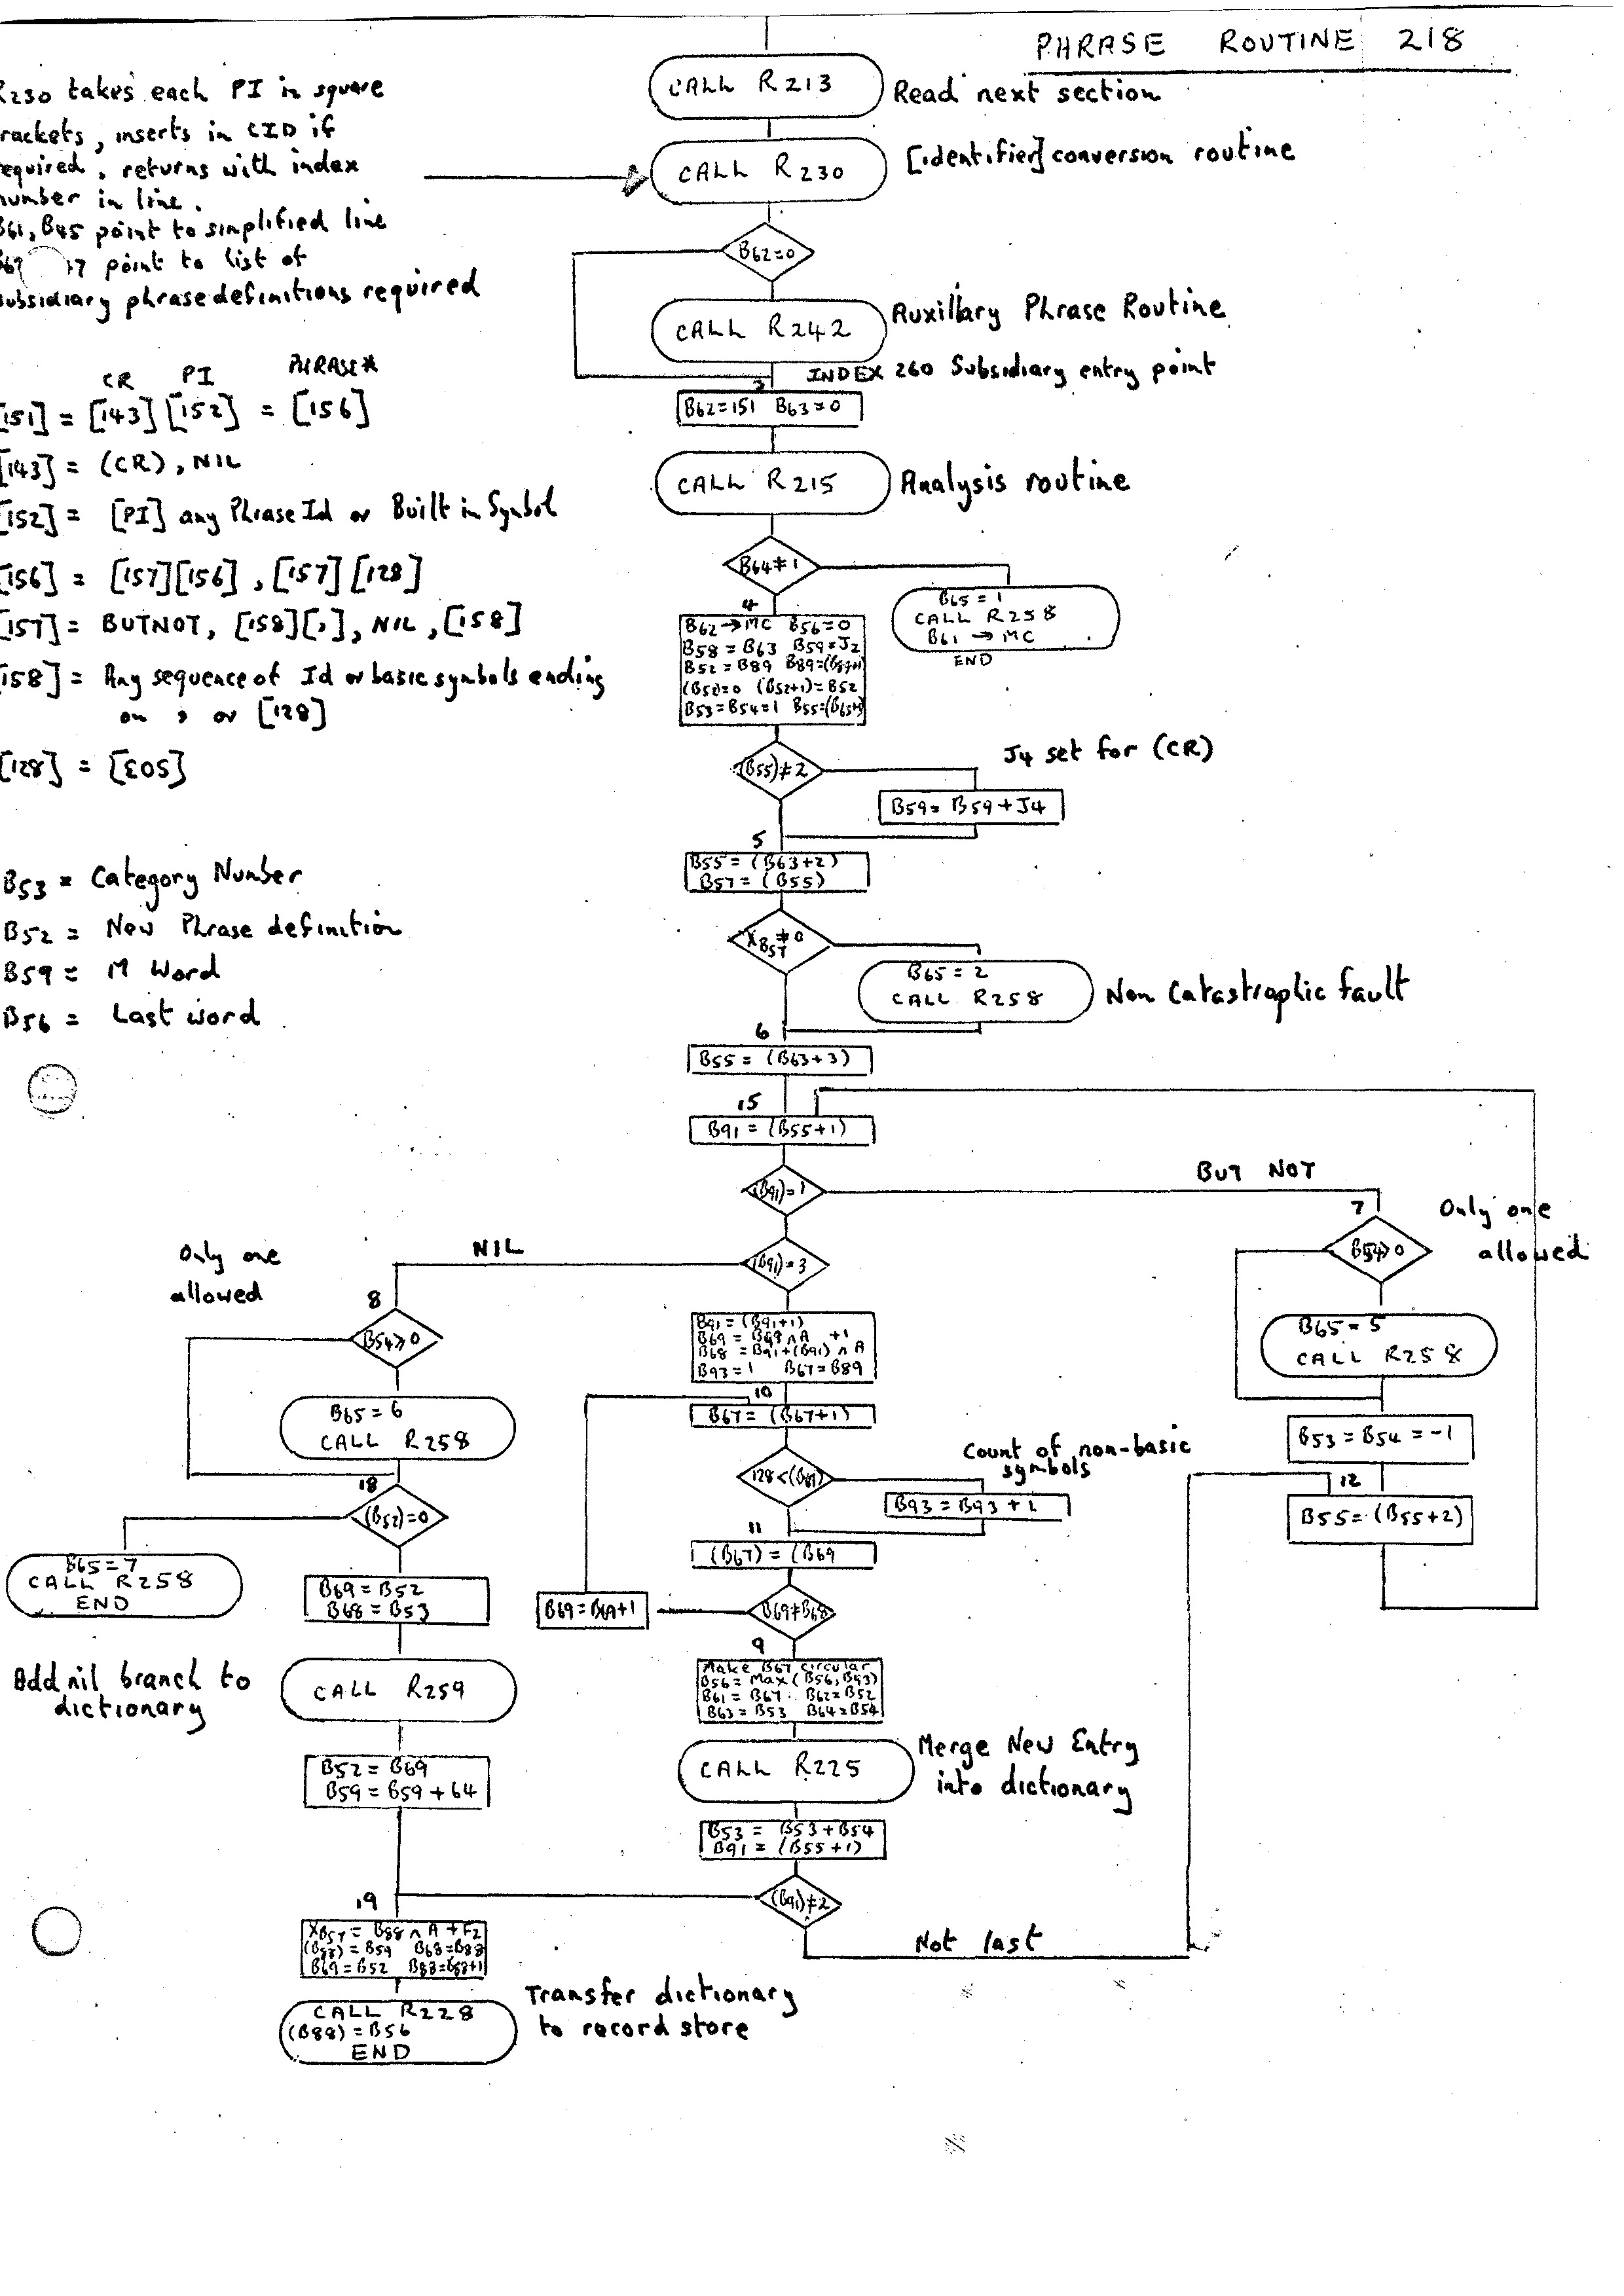 PHRASE ROUTINE 218
R230 takes each PI in square
brackets, inserts in CID if
required, returns with index
number in line.
B61, B45 point to simplified line
point to list of
subsidiary phrase definitions required
CR PI PHRASE*
[151] = [143] [152] = [156]
[143] = (CR), NIL
[152] = [PI] any Phrase Id or Built in Symbol
[156] = [157][156], [157][128]
[157] = BUTNOT, [158][,], NIL, [158]
[158] = Any sequence of Id or basic symbols ending
on , or [128]
[128] = [EOS]
B53 = Category Number
B52 = New Phrase definition
B59 = M Word
B56 = Last word
CALL R213
Read next section
CALL R230
[identifier] conversion routine
B62=0
CALL R242
Auxillary Phrase Routine
INDEX 260 Subsidiary entry point
3
B62=151 B63=0
CALL R215
Analysis routine
B64≠1
B65=1
CALL R258
B61 → MC
END
4
B62 → MC B56=0
B58=B63 B59=J2
B52=B89 B89=(B89+1)
(B52)=0 (B52+1)=B52
B53=B54=1 B55=(B63+1)
(B55)≠2
J4 set for (CR)
B59=B59+J4
5
B55=(B63+2)
B57=(B55)
XB57≠0
B65=2
CALL R258
Non Catastrophic fault
6
B55=(B63+3)
15
B91=(B55+1)
(B91)=1
BUT NOT
7
Only one
allowed
B54>0
B65=5
CALL R258
B53=B54=-1
12
B55=(B55+2)
(B91)=3
NIL
Only one
allowed
8
B54≥0
B65=6
CALL R258
18
(B52)=0
B65=7
CALL R258
END
B69=B52
B68=B53
Add nil branch to
dictionary
CALL R259
B52=B69
B59=B59+64
B91=(B91+1)
B68=B91+(B91)∧A
B93=1 B67=B89
10
B67=(B67+1)
Count of non-basic
symbols
B93=B93+1
11
(B67)=(B69
B69≠B68
B69=B69+1
9
Make B67 circular
B56=Max(B56,B93)
B61=B67 B62=B52
B63=B53 B64=B54
CALL R225
Merge New Entry
into dictionary
B53=B53+B54
B91=(B55+1)
(B91)≠2
Not last
19
XB57=B88∧A+F2
(B88)=B59 B68=B88
B69=B52 B88=B88+1
CALL R228
(B88)=B56
END
Transfer dictionary
to record store